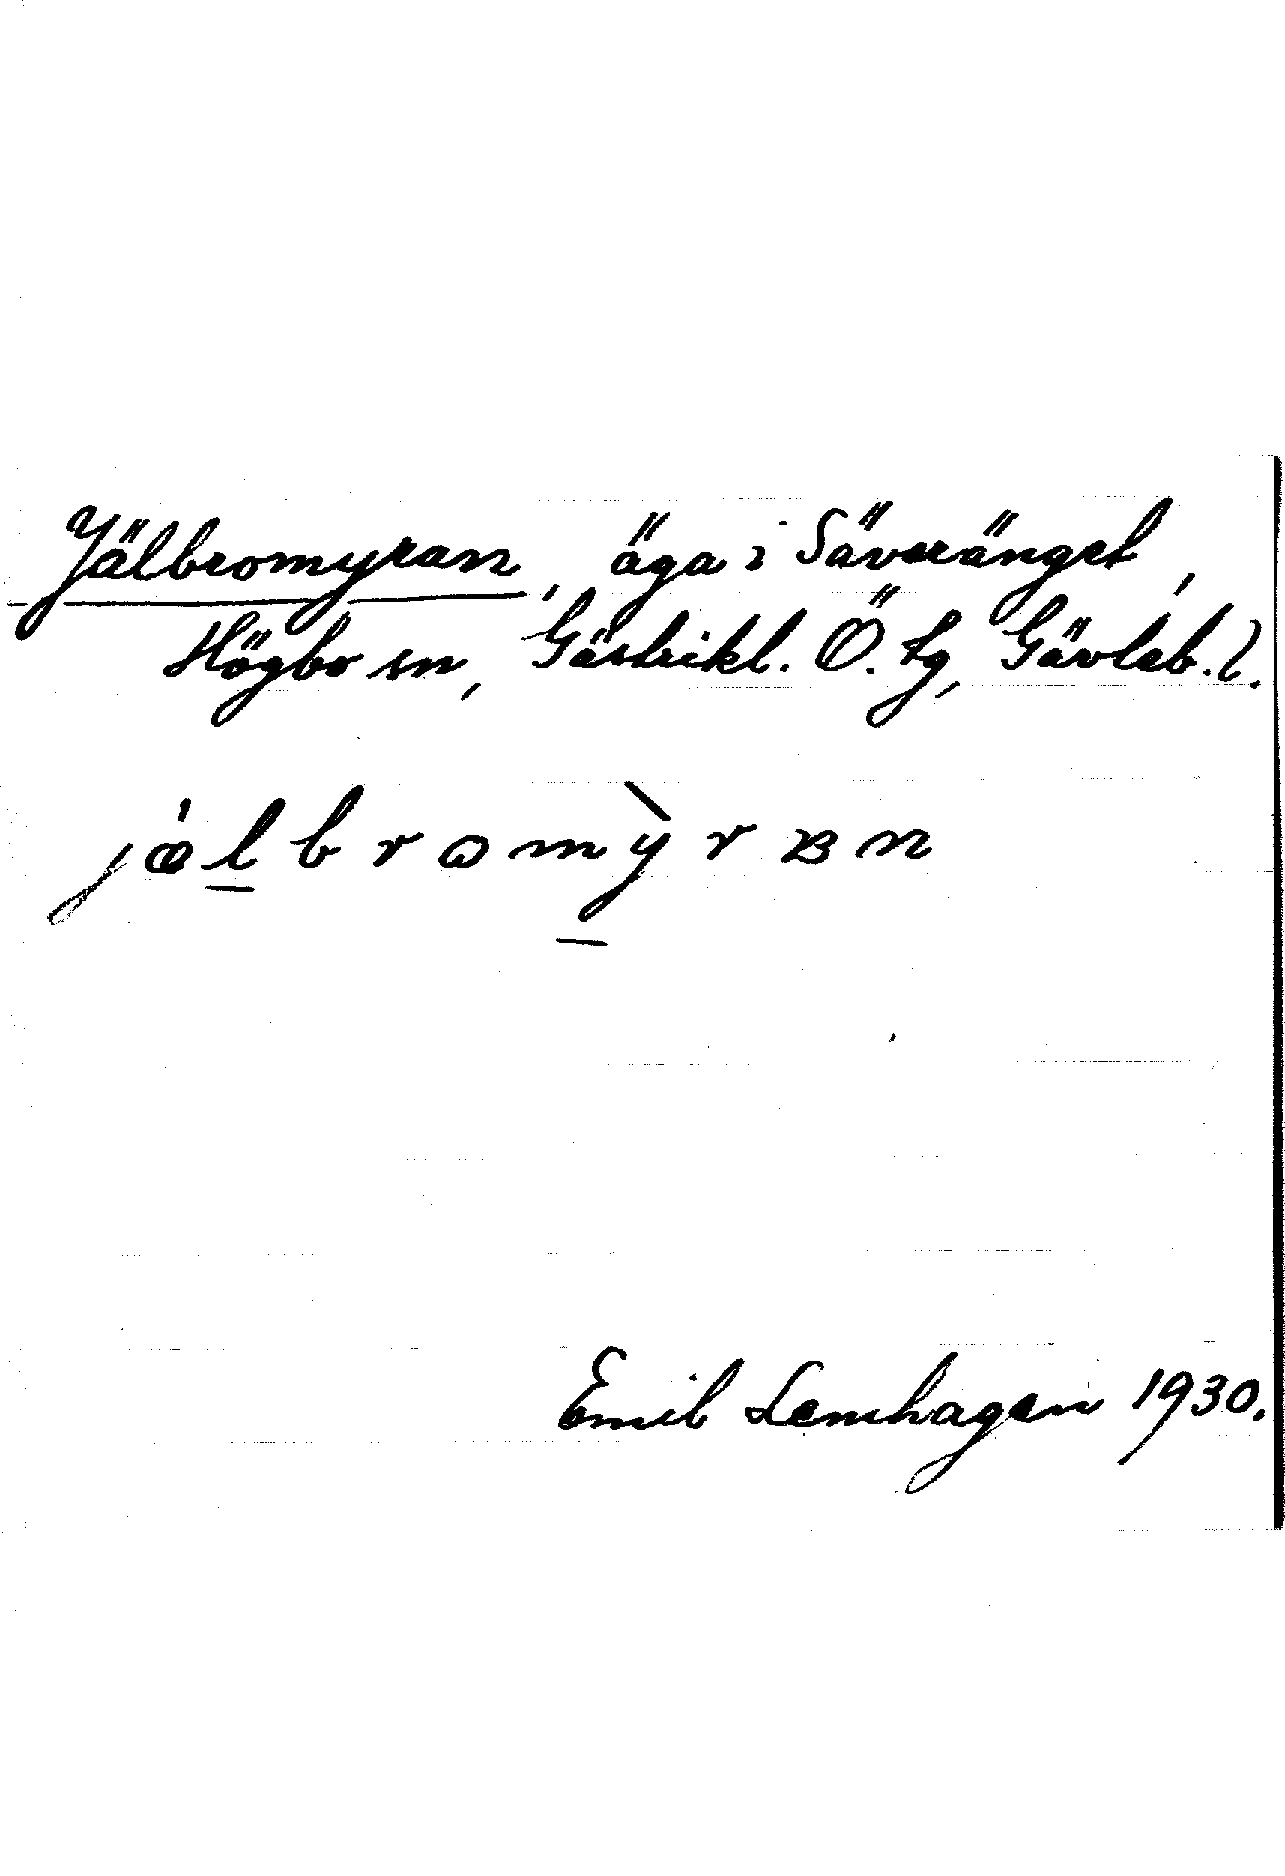 Jälbromyran, äga i Säveränget,
Högbo sn, Gästrikl. Ö. tg, Gävleb. l.
jǽlbromỳrɐn
Emil Lemhagen 1930.